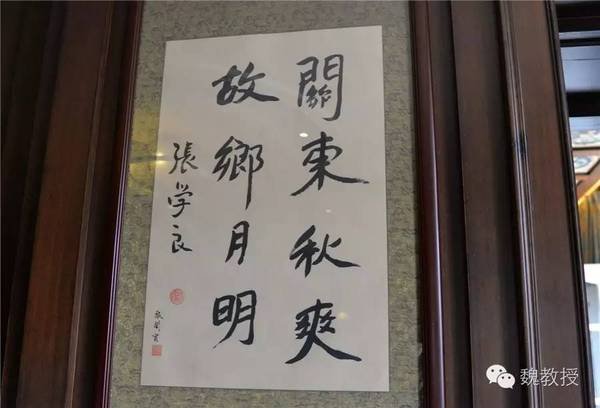 關東秋爽
故鄉月明
張学良
魏教授